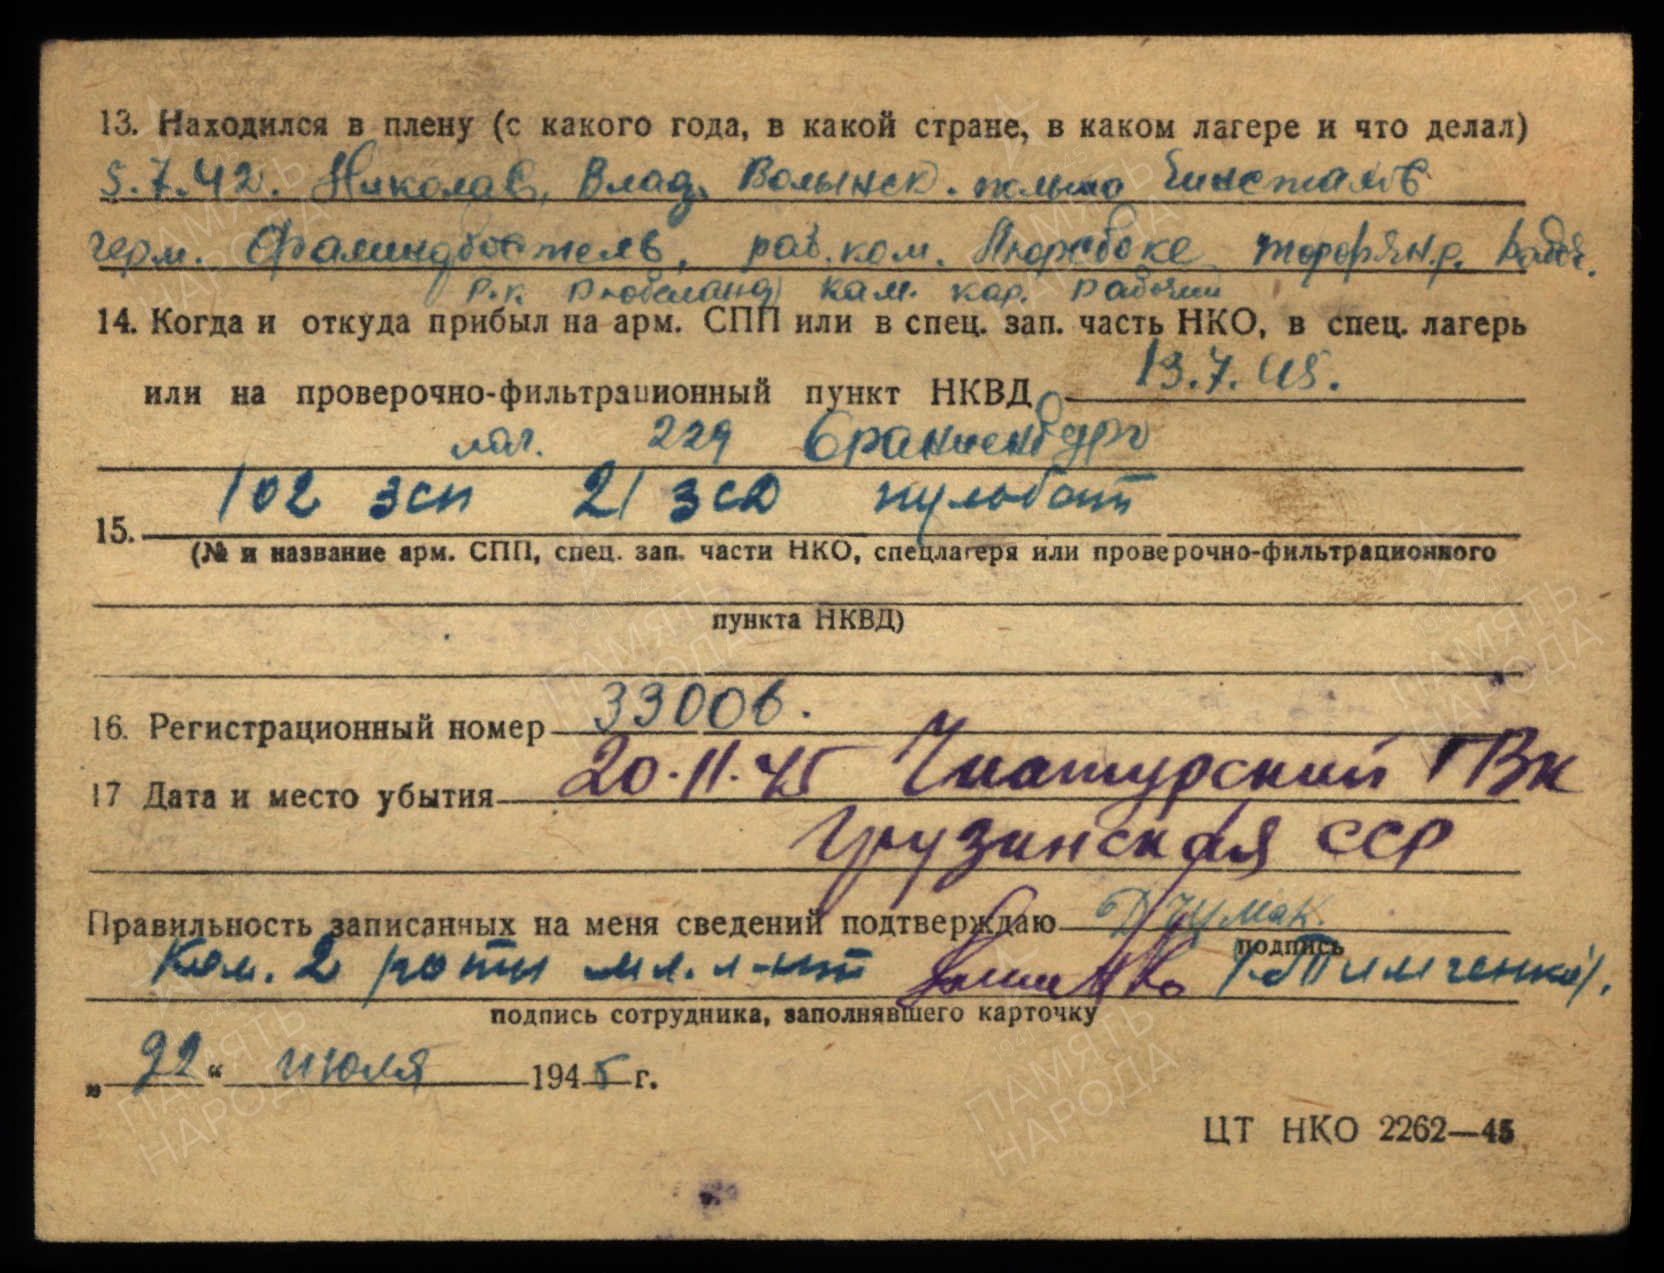 13. Находился в плену (с какого года, в какой стране, в каком лагере и что делал)
5.7.42. Николаев, Влад. Волынск. польша
герм. Фалингбостель, раб. ком. торфян.р. Рабоч.
р.к. кам. кар. рабочий
14. Когда и откуда прибыл на арм. СПП или в спец. зап. часть НКО, в спец. лагерь
или на проверочно-фильтрационный пункт НКВД 13.7.45.
лаг. 229 Ораниенбург
102 зсп 21 зсд пульбат
15.
(№ и название арм. СПП, спец. зап. части НКО, спецлагеря или проверочно-фильтрационного
пункта НКВД)
16. Регистрационный номер 33006.
17 Дата и место убытия 20.11.45 Чиатурский ГВК
Грузинская ССР
Правильность записанных на меня сведений подтверждаю Чумак
подпись
Ком. 2 роты мл. л-нт /Тимченко/.
подпись сотрудника, заполнявшего карточку
„22“ июля 1945 г.
ЦТ НКО 2262—45
ПАМЯТЬ НАРОДА
1941 1945